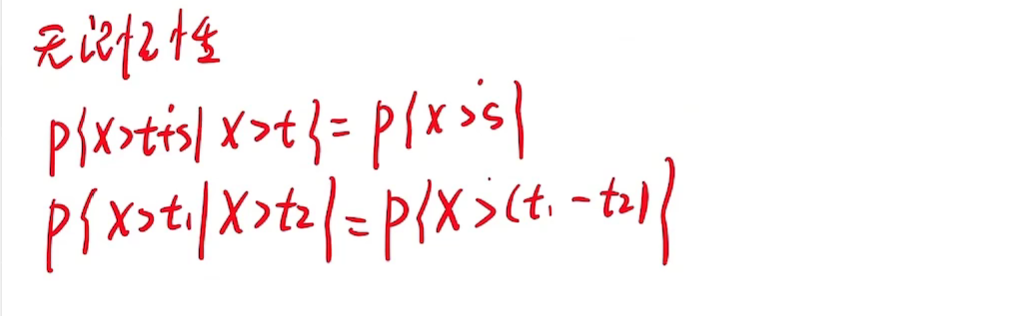 无记忆性
P{X>t+s|X>t}=P{X>s}
P{X>t₁|X>t₂}=P{X>(t₁-t₂)}